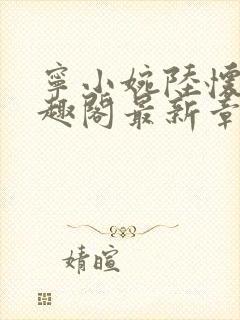 寧小婉陸懷
趣閣最新章
婧暄